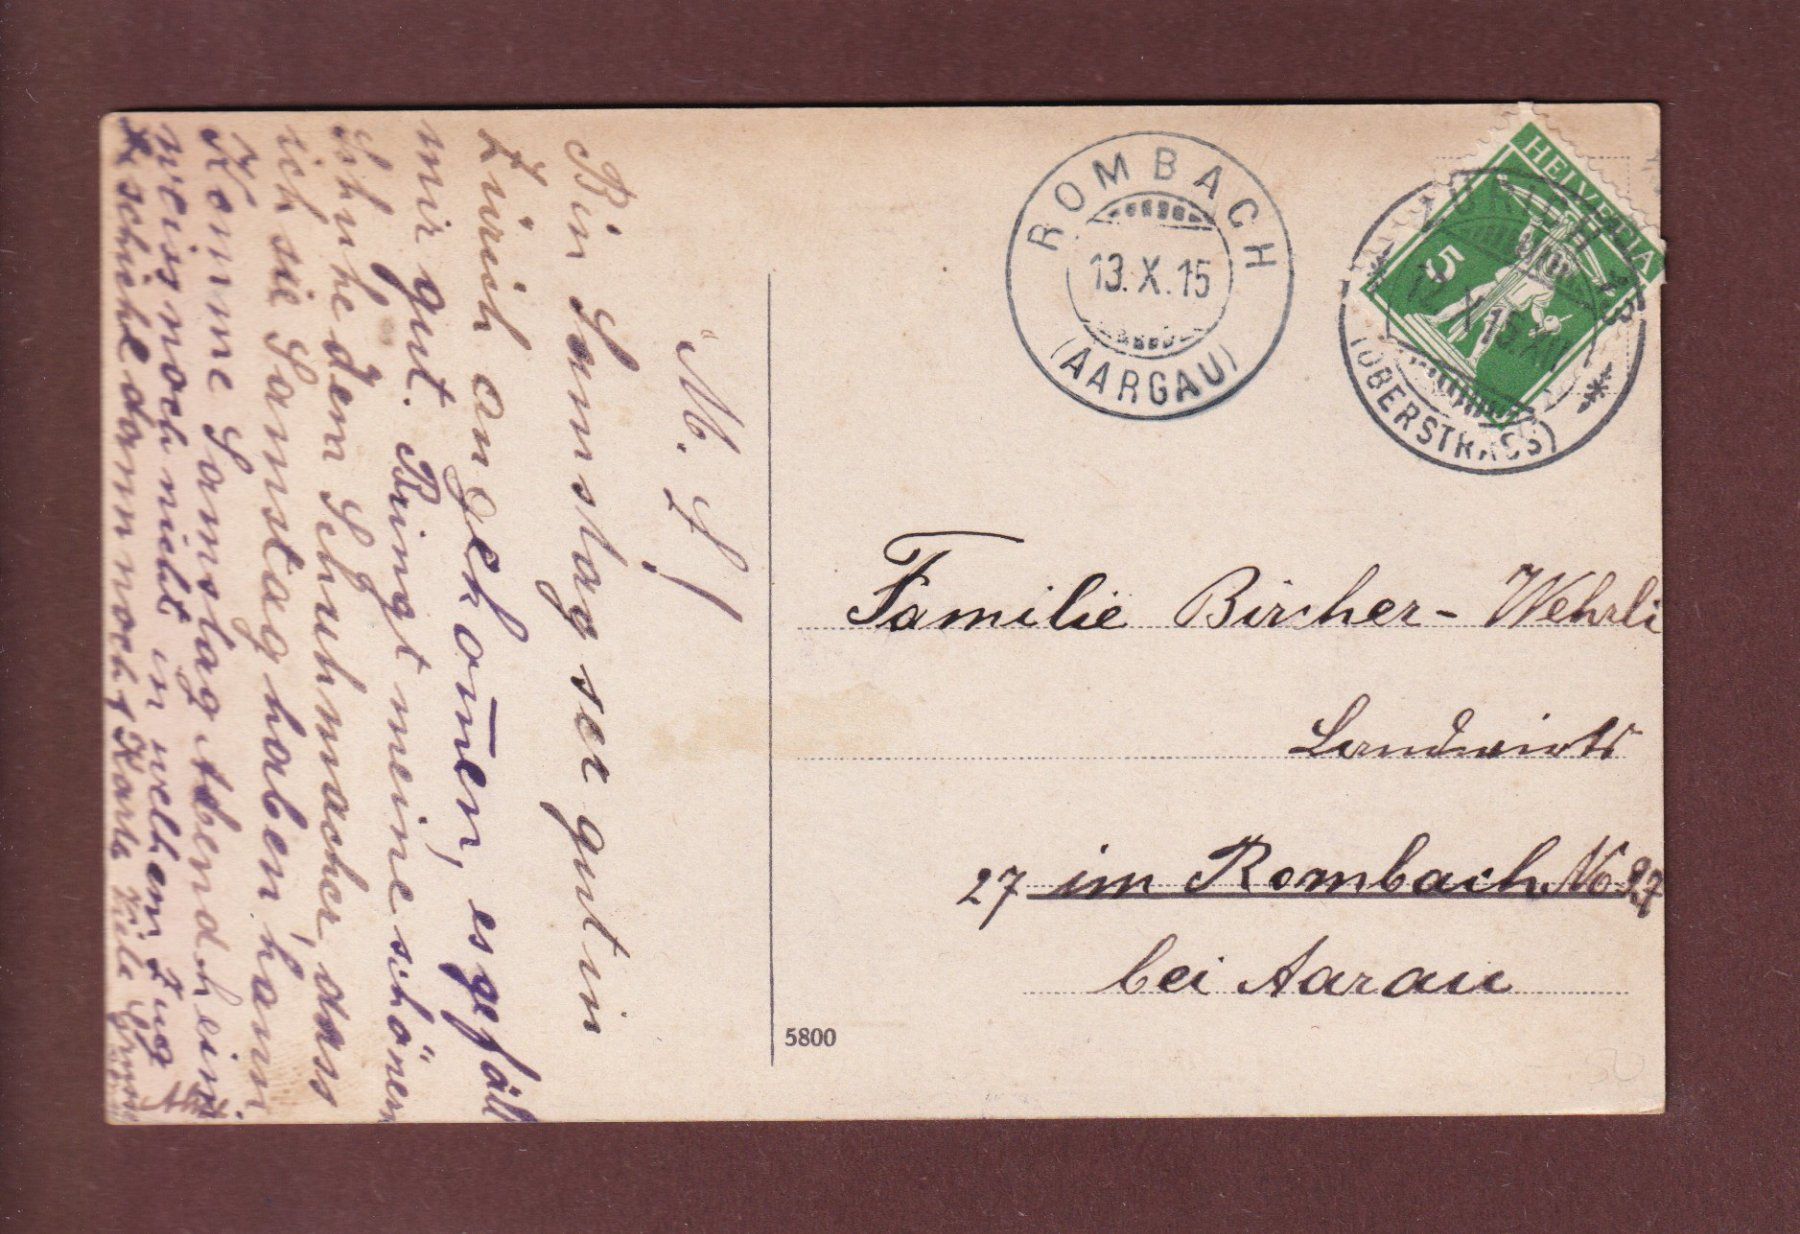 M. L!
Bin Samstag ser gut in
Zürich angekom̄en, es gefällt
mir gut. Bringt meine schönen
Schuhe dem Schuhmacher, dass
ich sie Samstag haben kann
Komme Samstag Abend heim
weis noch nicht in welhem Zug
schickt dann noch 1 Karte Viele Grüsse
ROMBACH
13.X.15
(AARGAU)
HELVETIA
5
ZÜRICH 15
12.X.15.XII
(OBERSTRASS)
Familie Bircher-Wehrli
Landwirts
27 im Rombach No 27
bei Aarau
5800
50